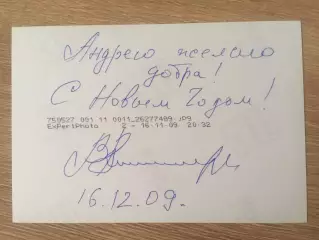 Андрею желаю
добра!
С Новым Годом!
759527 001 11 0011_26277489 JPG
ExPertPhoto 2 - 16-11-09 20:32
16.12.09.